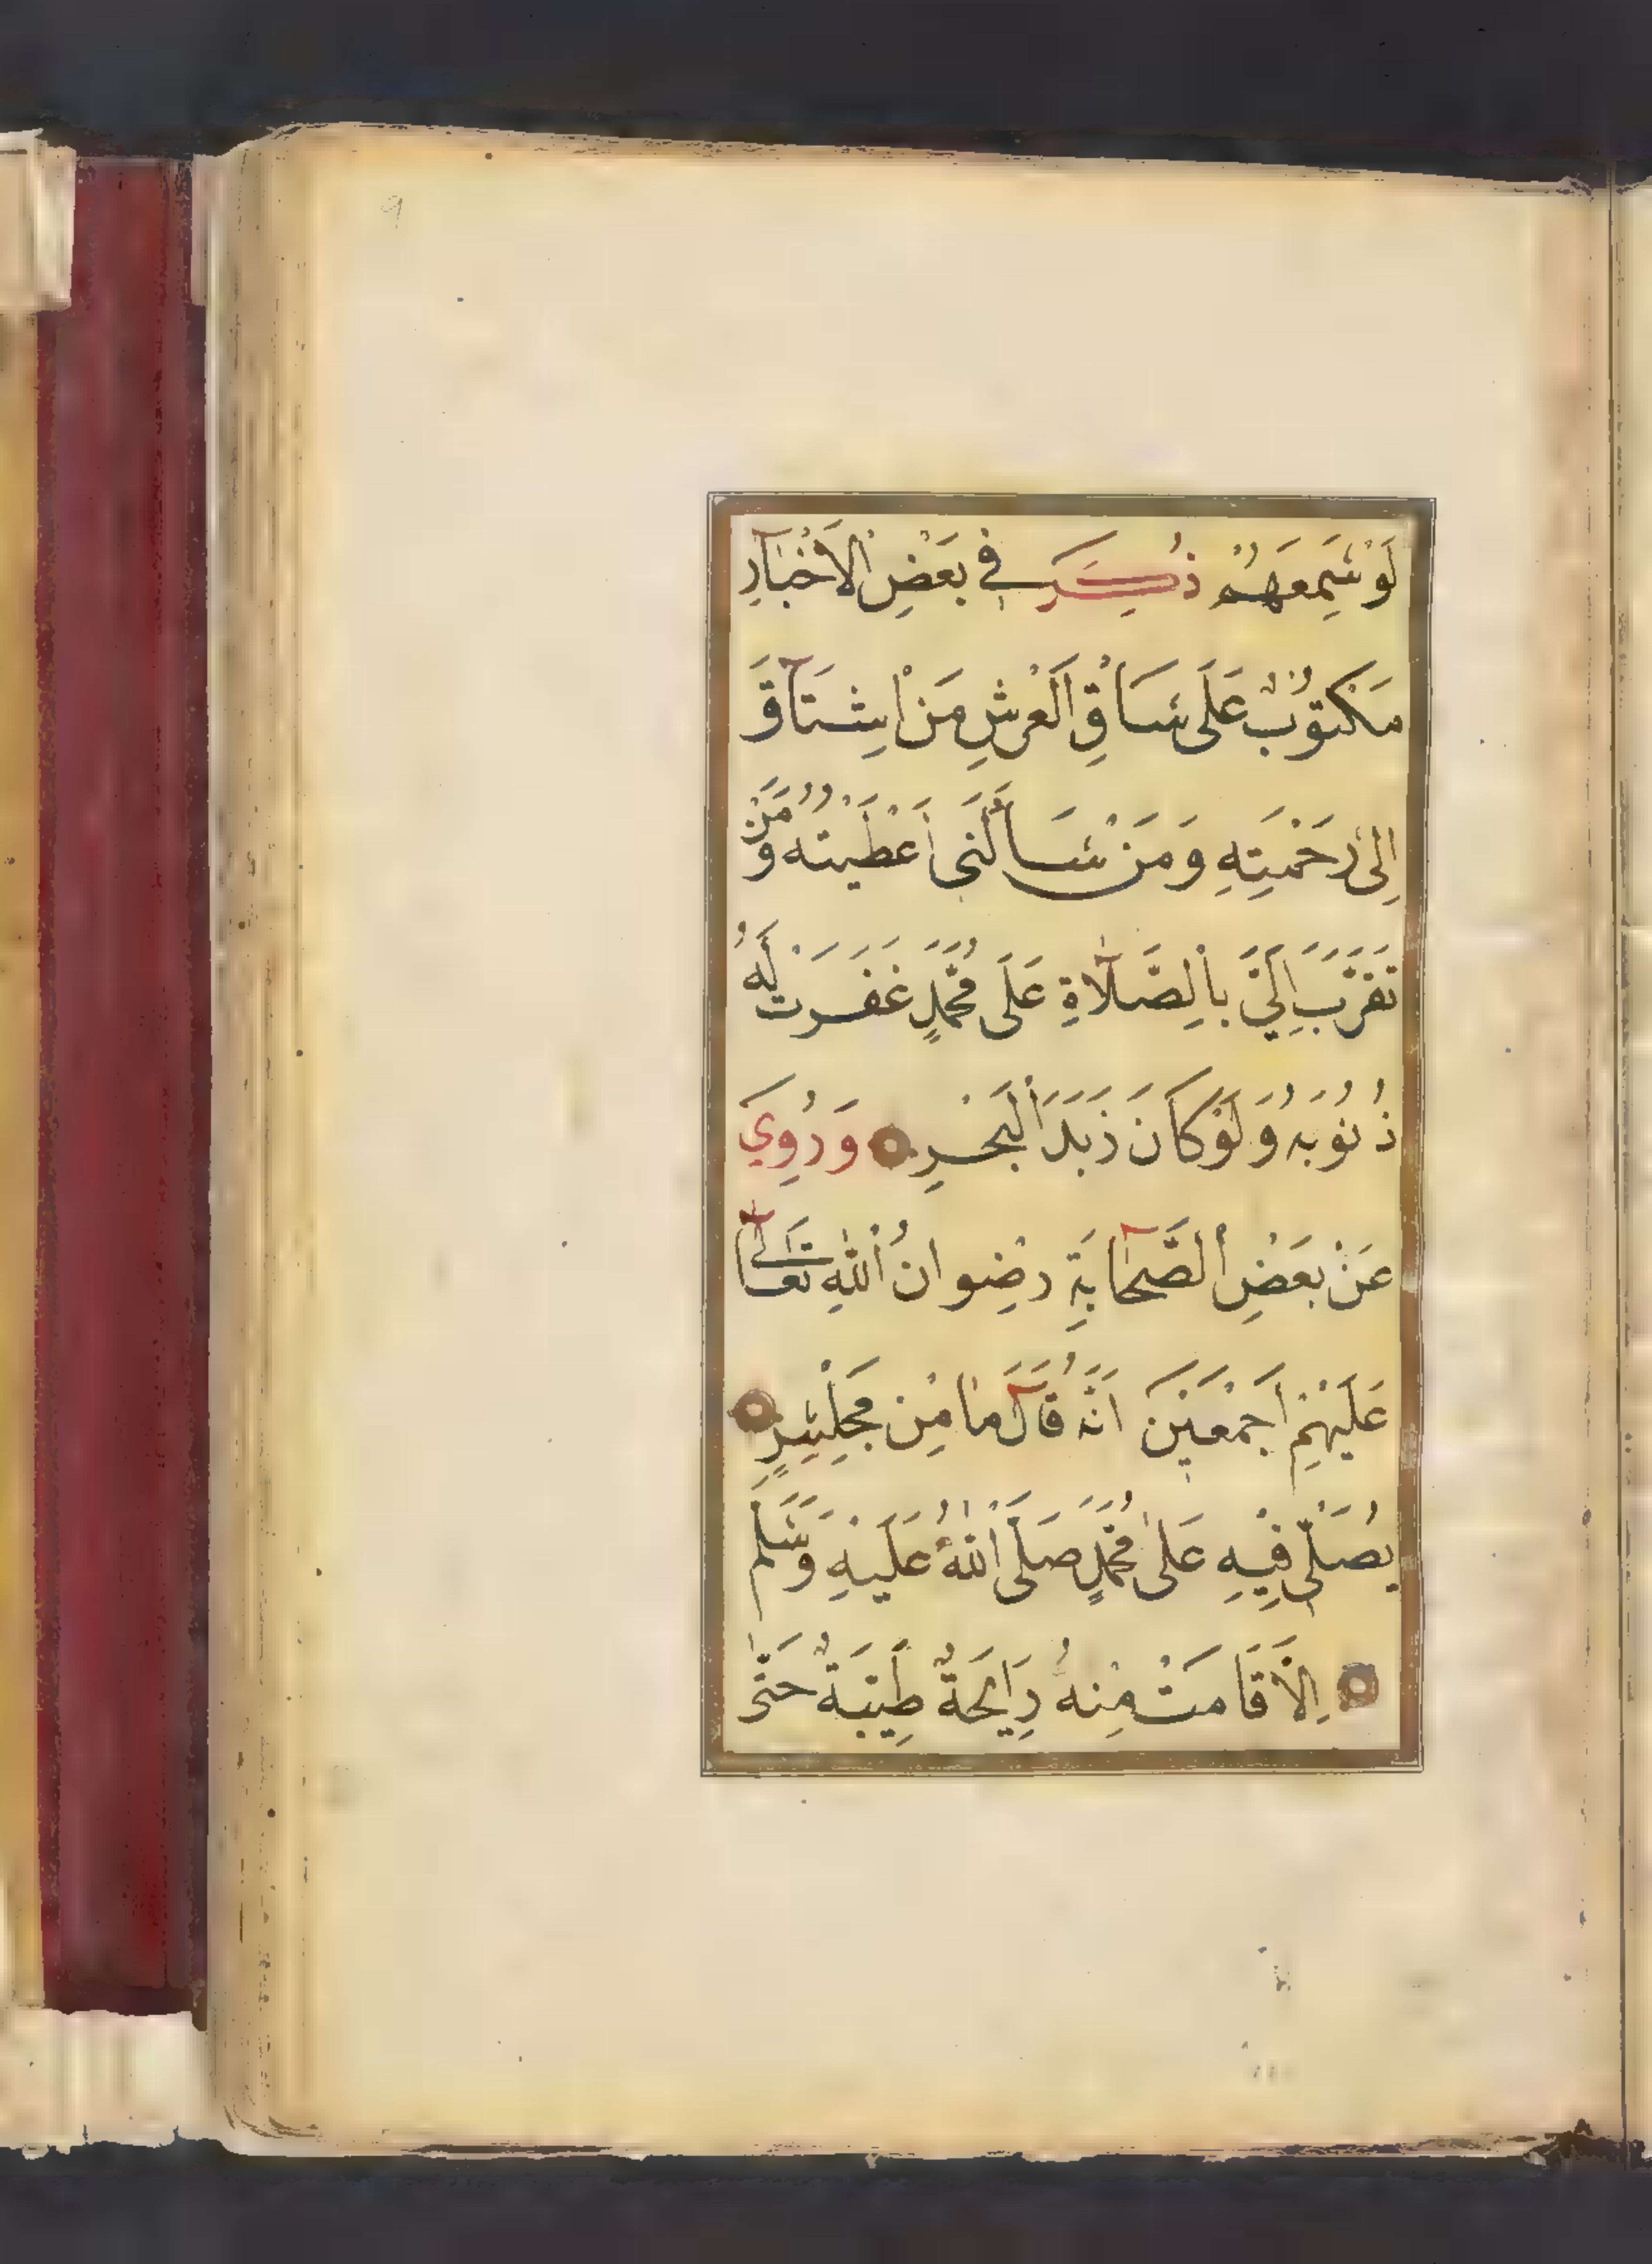 9
لَوْ سَمِعَهُمْ ذُكِرَ فِي بَعْضِ الْاَخْبَآرِ
مَكْتُوْبٌ عَلَى سَاقِ الْعَرْشِ مَنْ اِشْتَآقَ
اِلَى رَحْمَتِهِ وَمَنْ سَأَلَنِى اَعْطَيْتُهُ وَمَنْ
تَقَرَّبَ اِلَيَّ بِالصَّلَاةِ عَلَى مُحَمَّدٍ غَفَرْتُ لَهُ
ذُنُوْبَهُ وَلَوْ كَانَ زَبَدَ الْبَحْرِ وَرُوِيَ
عَنْ بَعْضِ الصَّحَآبَةِ رِضْوَانُ اللهِ تَعَالَى
عَلَيْهِمْ اَجْمَعِيْنَ اَنَّهُ قَآلَ مَا مِنْ مَجْلِسٍ
يُصَلَّى فِيْهِ عَلَى مُحَمَّدٍ صَلَّى اللهُ عَلَيْهِ وَسَلَّمَ
اِلَّا قَامَتْ مِنْهُ رَايِحَةٌ طَيِّبَةٌ حَتَّى